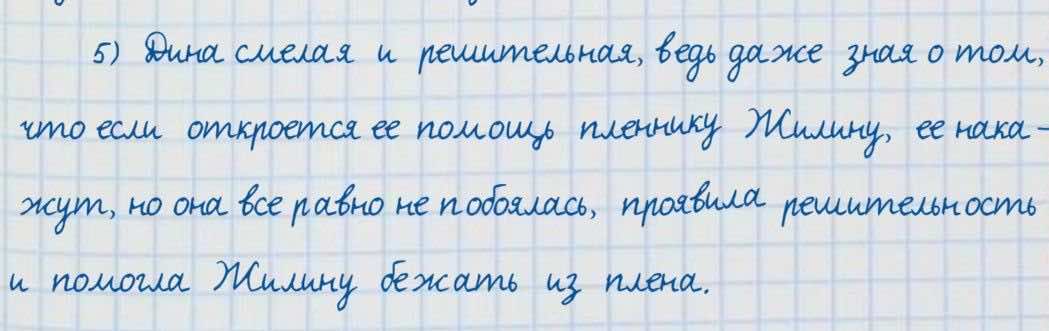 5) Дина смелая и решительная, ведь даже зная о том,
что если откроется ее помощь пленнику Жилину, ее нака-
жут, но она все равно не побоялась, проявила решительность
и помогла Жилину бежать из плена.